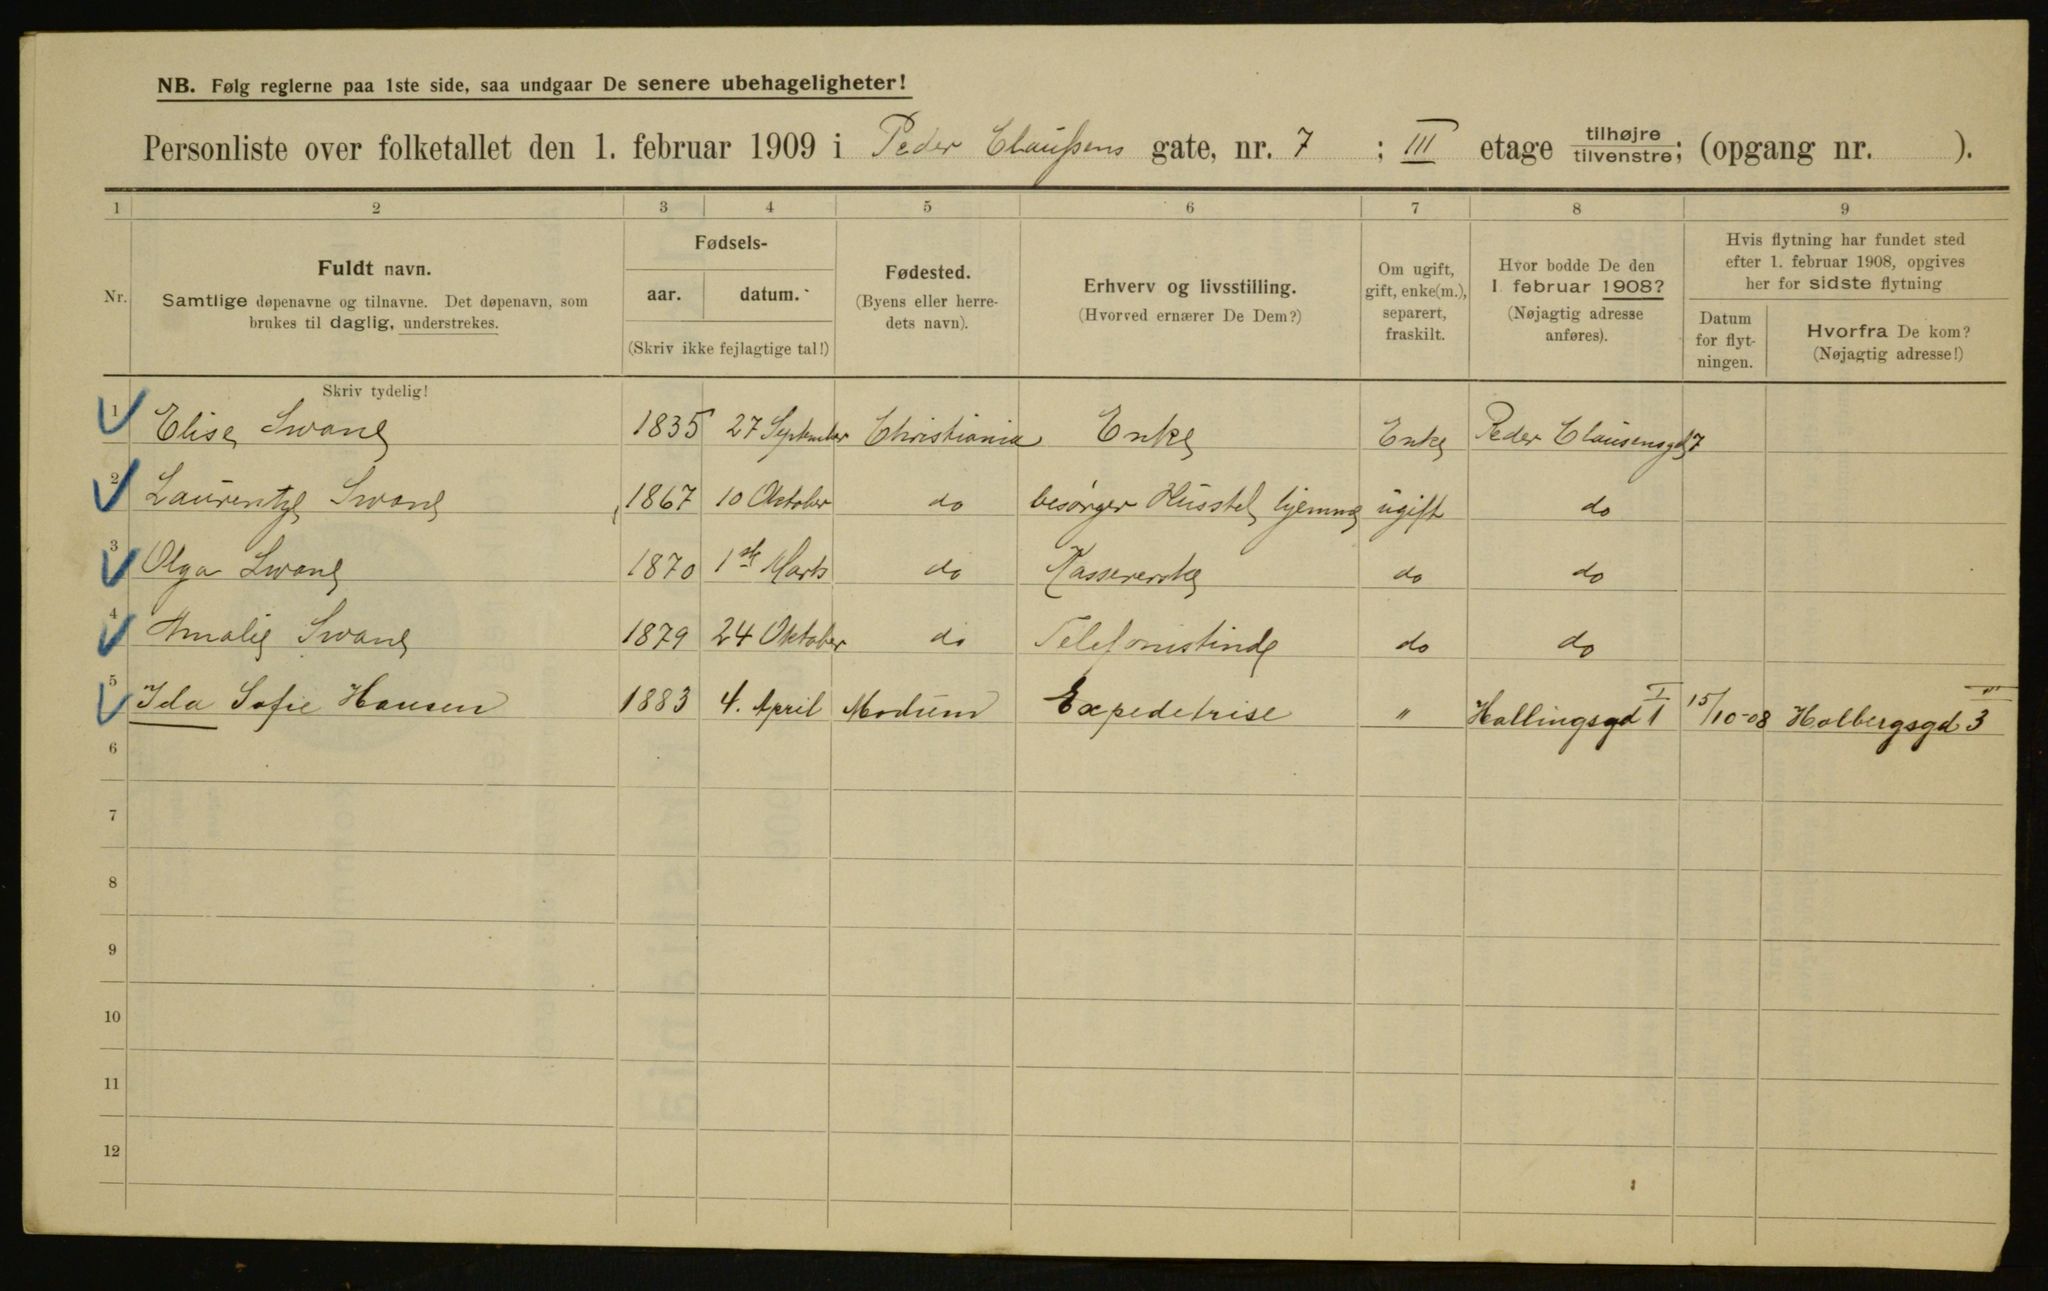 NB. Følg reglerne paa 1ste side, saa undgaar De senere ubehageligheter!
Personliste over folketallet den 1. februar 1909 i Peder Claussens gate, nr. 7 ; III etage tilhøjre tilvenstre; (opgang nr. ).
1 2 3 4 5 6 7 8 9
Nr.
Fuldt navn.
Samtlige døpenavne og tilnavne. Det døpenavn, som
brukes til daglig, understrekes.
Fødsels-
aar. datum.
(Skriv ikke fejlagtige tal!)
Fødested.
(Byens eller herre-
dets navn).
Erhverv og livsstilling.
(Hvorved ernærer De Dem?)
Om ugift,
gift, enke(m.),
separert,
fraskilt.
Hvor bodde De den
1 februar 1908?
(Nøjagtig adresse
anføres).
Hvis flytning har fundet sted
efter 1. februar 1908, opgives
her for sidste flytning
Datum
for flyt-
ningen.
Hvorfra De kom?
(Nøjagtig adresse!)
Skriv tydelig!
1 Elise Swane 1835 27 September Christiania Enke Enke Peder Clausensgd 7
2 Laurentze Swane 1867 10 Oktober do besørger Husstel hjemme ugift do
3 Olga Swane 1870 1ste Marts do Kassererske do do
4 Amalie Swane 1879 24 Oktober do Telefonistinde do do
5 Ida Sofie Hansen 1883 4. April Modum Expedetrise " Hallingsgd 1 I 15/10-08 Holbergsgd 3
6
7
8
9
10
11
12